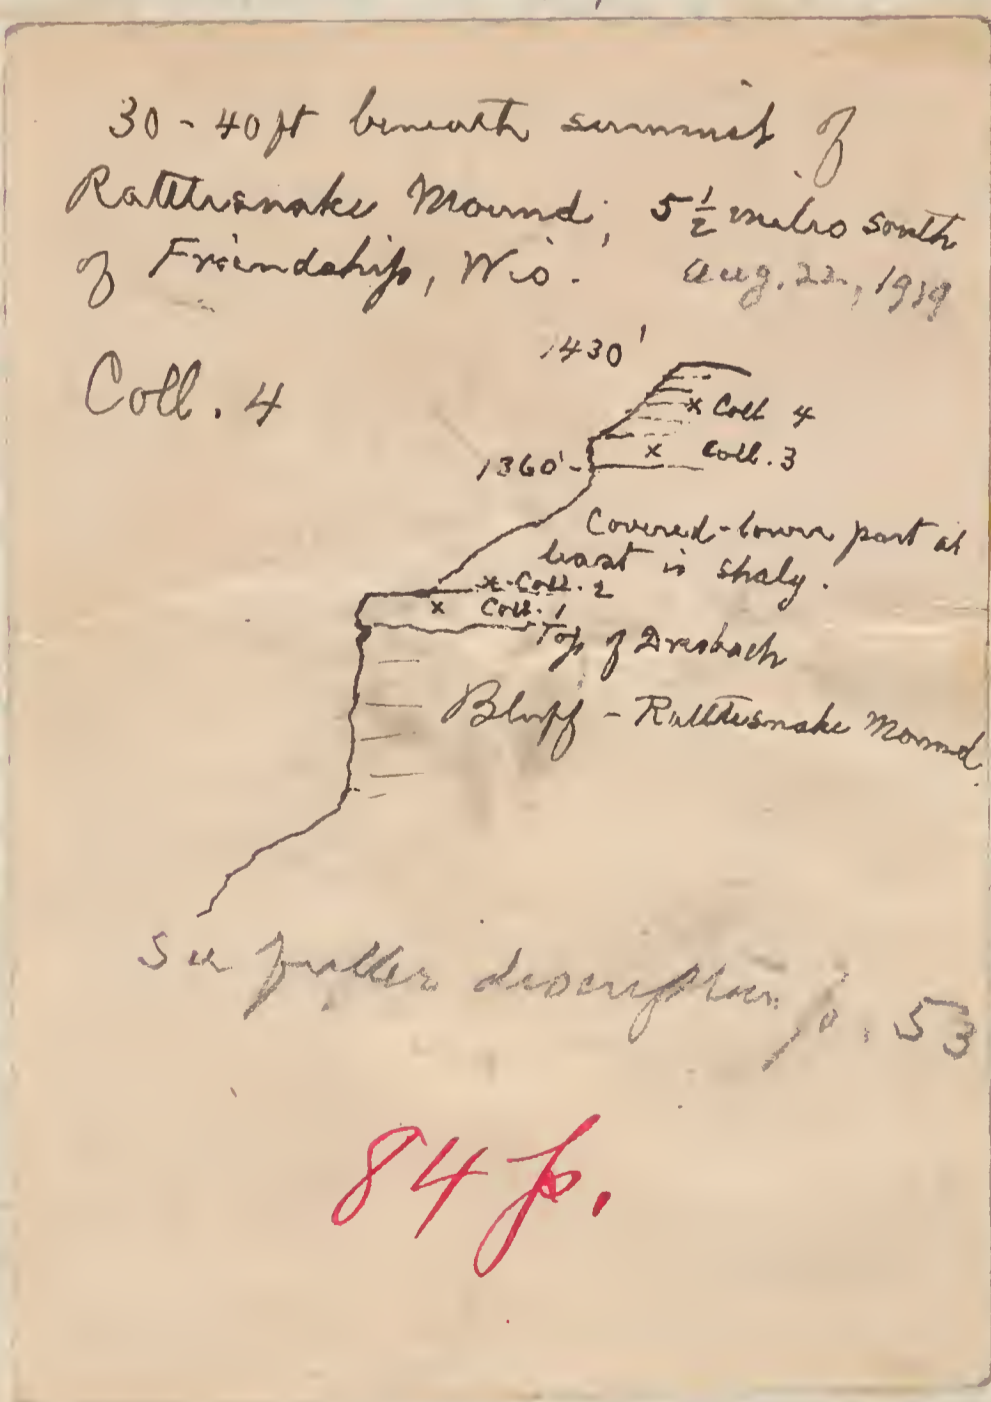 30 - 40 ft beneath summit of
Rattlesnake Mound, 5 1/2 miles south
of Friendship, Wis. Aug. 22, 1919
1430'
Coll. 4
x Coll 4
x Coll. 3
1360'-
Covered - lower part at
least is shaly.
x - Coll. 2
x Coll. 1
Top of Dresbach
Bluff - Rattlesnake Mound.
See fuller description p. 53
84 p.